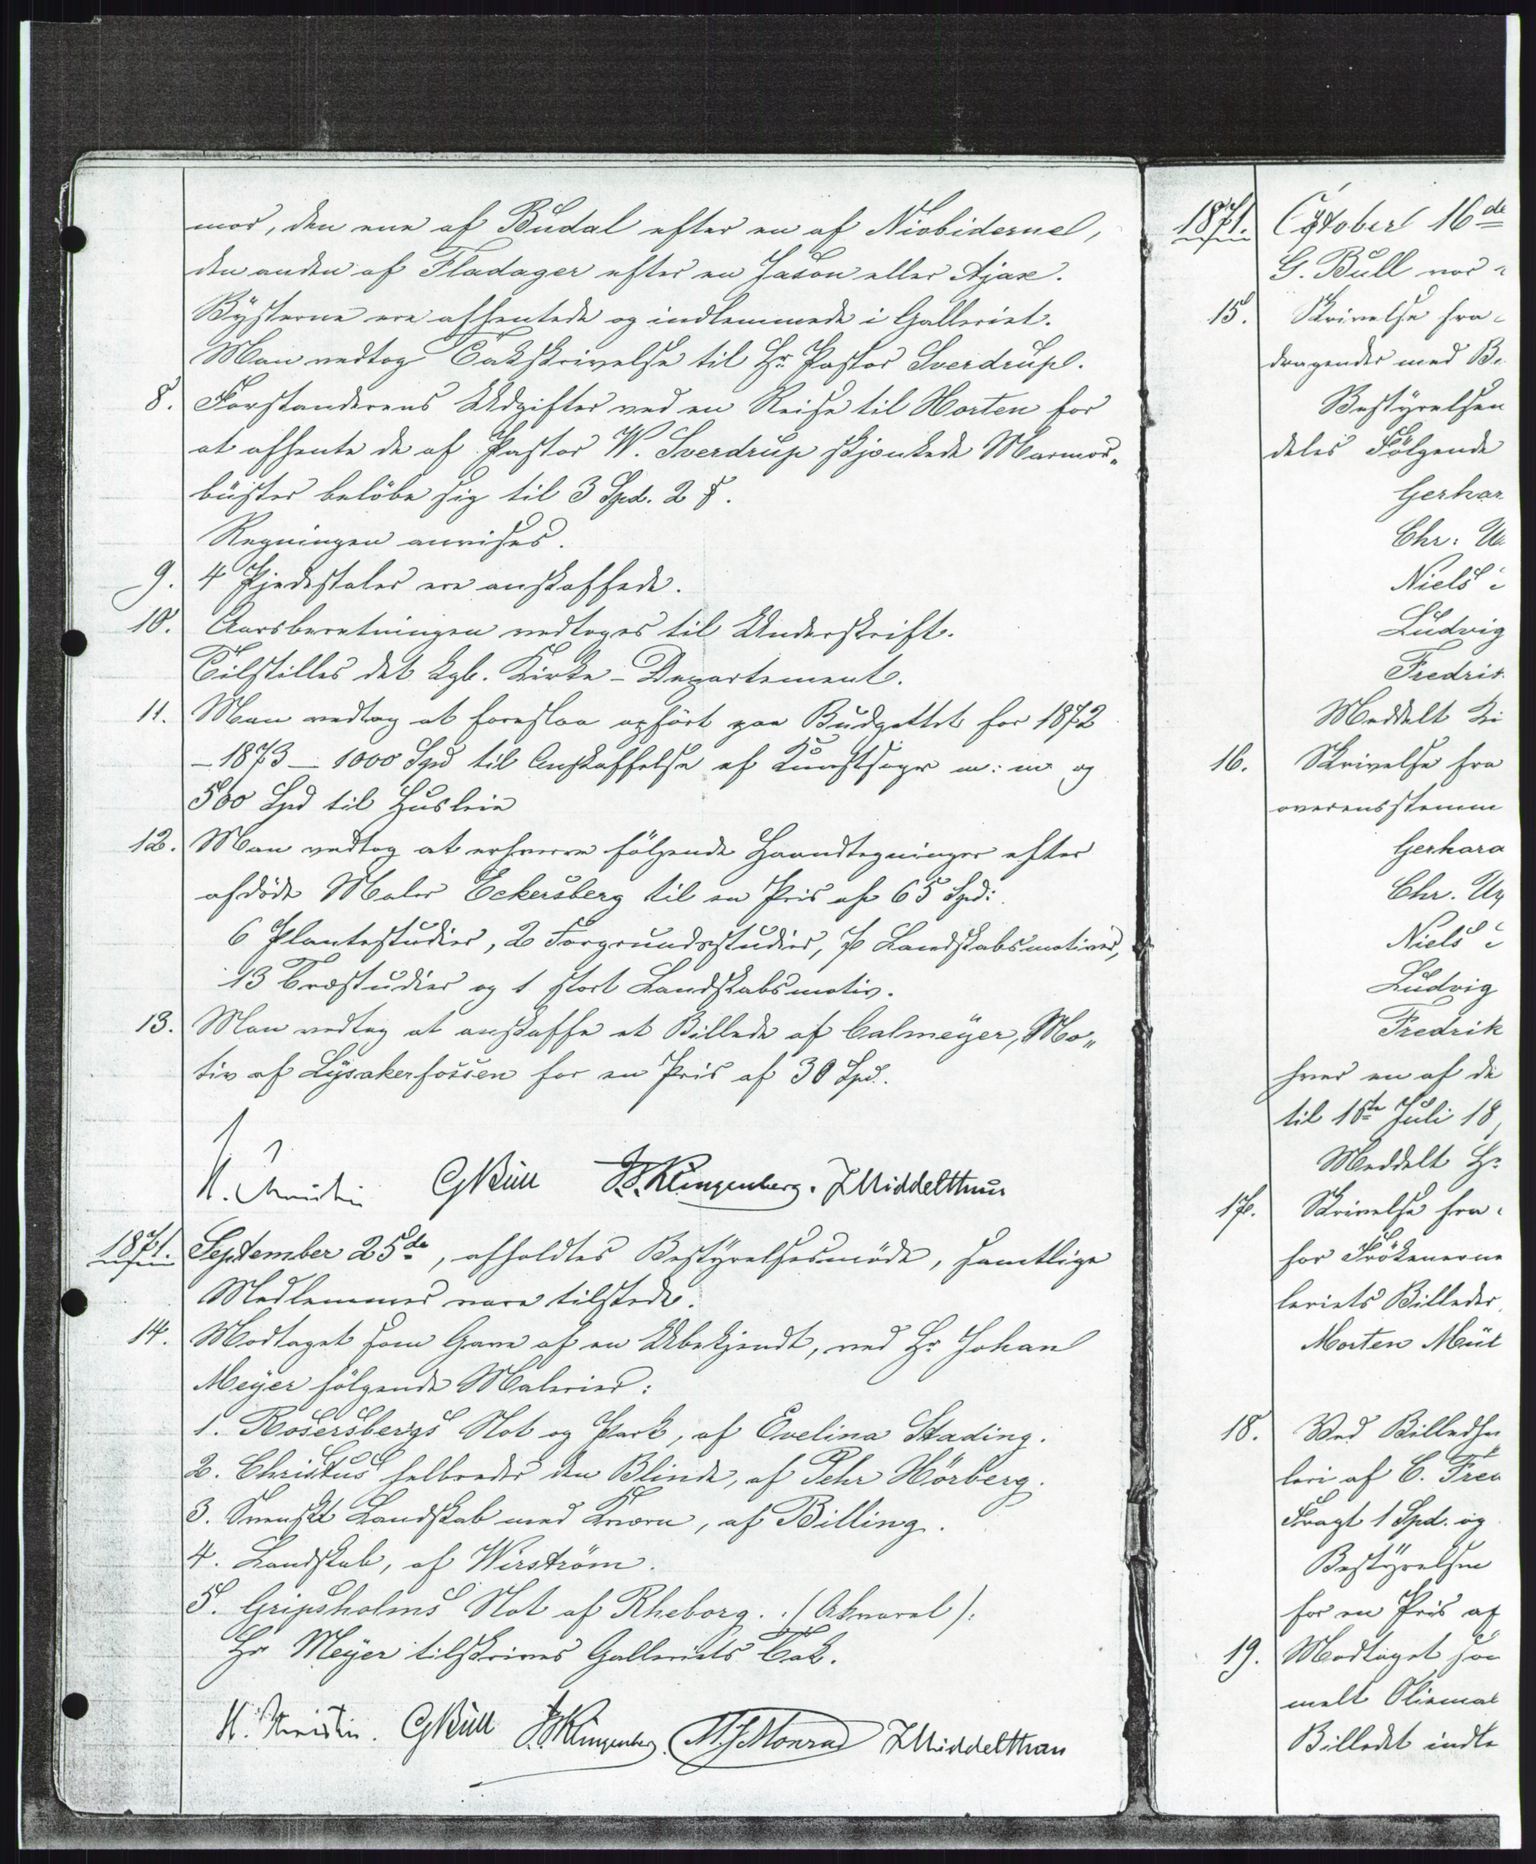 mor, den ene af Budal efter en af Niobiderne,
den anden af Fladager efter en Jason eller Ajax.
Bysterne ere afhentede og indlemmede i Galleriet.
Man vedtog Takskrivelse til Hr Pastor Sverdrup.
8. Forstanderens Udgifter ved en Reise til Horten for
at afhente de af Pastor W. Sverdrup skjænkede Marmor„
büster beløbe sig til 3 Spd. 2 ß.
Regningen anvises.
9. 4 Pjedestaler ere anskaffede.
10. Aarsberetningen vedtoges til Underskrift.
Tilstilles det kgl. Kirke-Departement.
11. Man vedtog at foreslaa opført paa Budgettet for 1872
–1873 – 1000 Spd til Anskaffelse af Kunstsager m: m og
500 Spd til Husleie
12. Man vedtog at erhverve følgende Haandtegninger efter
afdøde Maler Eckersberg til en Pris af 65 Spd:
6 Plantestudier, 2 Forgrundsstudier, 7 Landskabsmotiver,
13 Træstudier og 1 stort Landskabsmotiv.
13. Man vedtog at anskaffe et Billede af Calmeyer, Mo„
tiv af Lysakerfossen for en Pris af 30 Spd.
H. Christie GBull F.Klingenberg. JMiddelthun
1871. September 25de, afholdtes Bestyrelsesmøde, samtlige
Medlemmer vare tilstede.
14. Modtaget som Gave af en Ubekjendt, ved Hr Johan
Meyer følgende Malerier:
1. Rosersbergs Slot og Park, af Evelina Stading.
2. Christus helbreder den Blinde, af Pehr Hörberg.
3. Svenskt Landskab med Kværn, af Billing.
4. Landskab, af Wirström.
5. Gripsholms Slot af Rheborg. (Akvarel).
Hr Meyer tilskrives Galleriets Tak.
H. Christie. GBull F.Klingenberg. MJMonrad JMiddelthun
1871. October 16de
G. Bull var
15. Skrivelse fra
dragender med
Bestyrelsen
deles Følgende
Gerhar
Chr: U
Niels
Ludvig
Fredrik
Meddelt Ki
16. Skrivelse fra
overensstemm
Gerhard
Chr. Ur
Niels
Ludvig
Fredrik
hver en af de
til 15te Juli 18
Meddelt Hr
17. Skrivelse fra
for Frökenerne
leriets Billeder
Morten Mül
18. Ved Billedhu
leri af C. Fre
Fragt 1 Spd. og
Bestyrelsen
for en Pris af
19. Modtaget so
malt Oliemal
Billedet indle